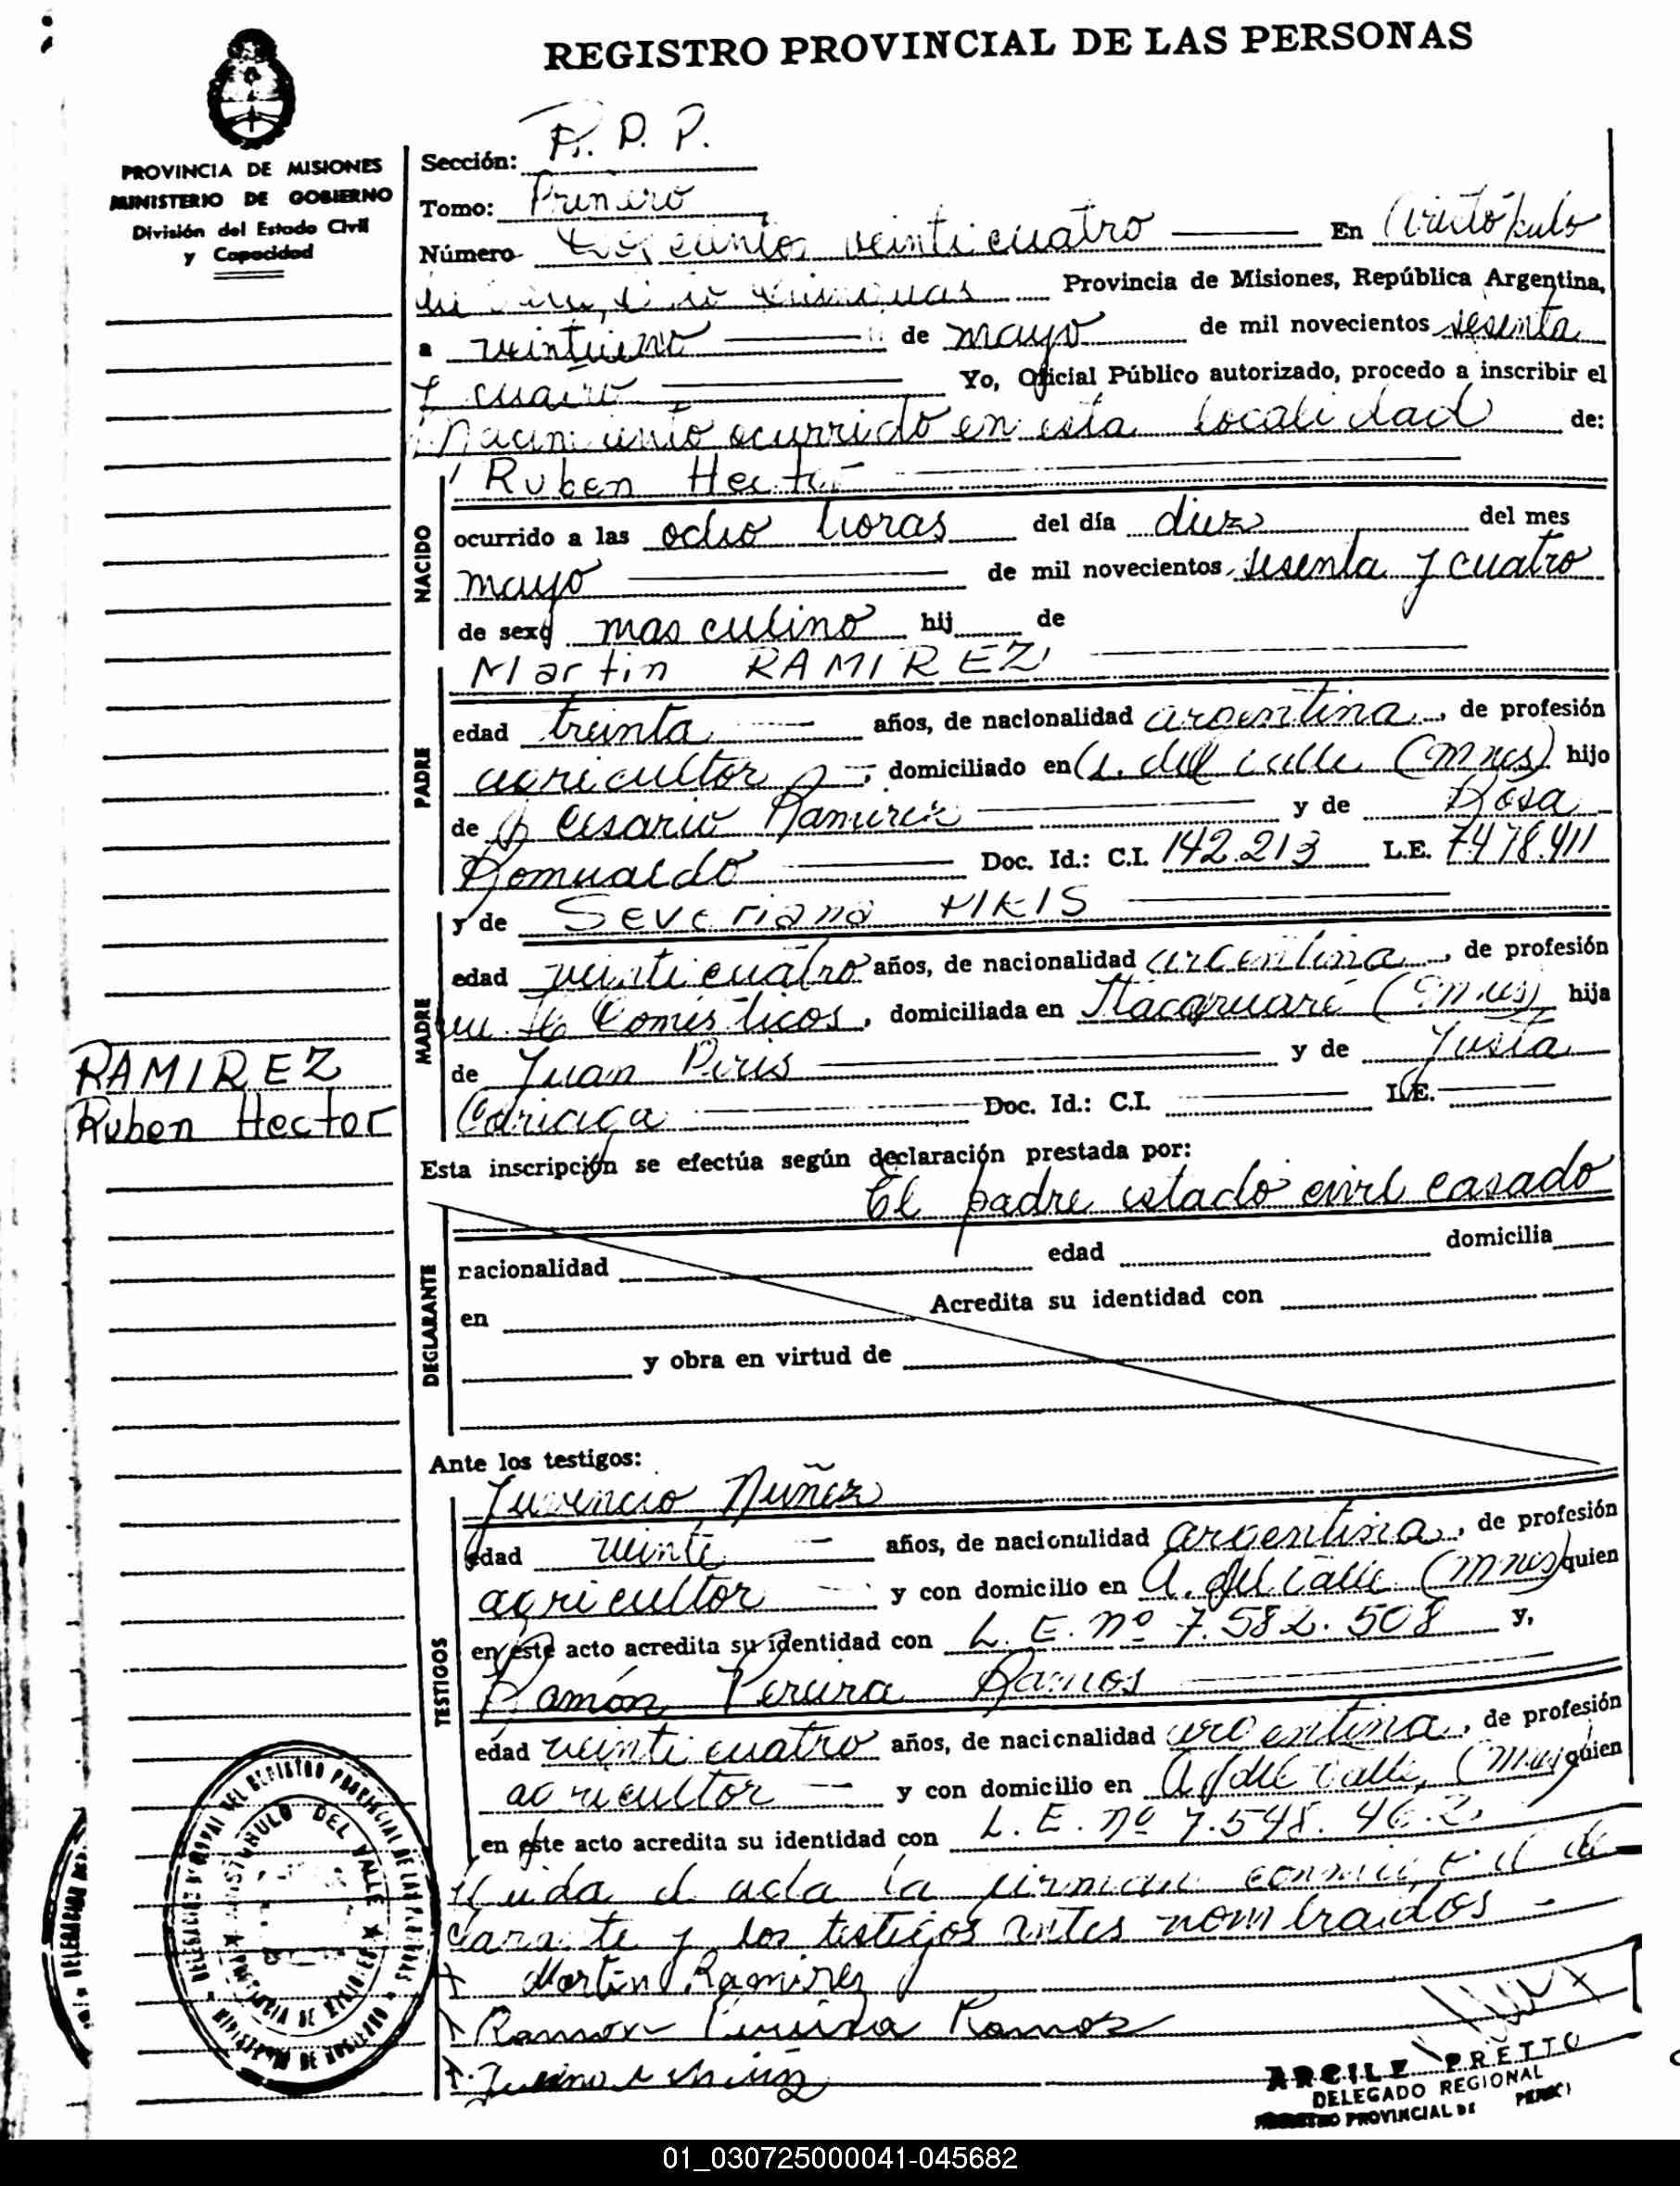 REGISTRO PROVINCIAL DE LAS PERSONAS
PROVINCIA DE MISIONES
MINISTERIO DE GOBIERNO
División del Estado Civil
y Capacidad
Sección: R. P. P.
Tomo: Primero
Número doscientos veinticuatro En Aristóbulo
del Valle, Provincia de Misiones, República Argentina,
a veintiuno de mayo de mil novecientos sesenta
y cuatro Yo, Oficial Público autorizado, procedo a inscribir el
Nacimiento ocurrido en esta localidad de:
Ruben Hector
NACIDO
ocurrido a las ocho horas del día diez del mes
mayo de mil novecientos sesenta y cuatro
de sexo masculino hij de
Martin RAMIREZ
PADRE
edad treinta años, de nacionalidad argentina, de profesión
agricultor, domiciliado en A. del Valle (Mnes) hijo
de Cesario Ramirez y de Rosa
Romualdo Doc. Id.: C.I. 142.213 L.E. 7.478.411
y de Severiana PIRIS
MADRE
edad veinticuatro años, de nacionalidad argentina, de profesión
Domésticos, domiciliada en Itacaruaré (Mnes) hija
de Juan Piris y de Justa
Doc. Id.: C.I. L.E.
RAMIREZ
Ruben Hector
Esta inscripción se efectúa según declaración prestada por:
El padre estado civil casado
DECLARANTE
nacionalidad edad domicilia
en Acredita su identidad con
y obra en virtud de
Ante los testigos:
Juvencio Nuñez
TESTIGOS
edad veinte años, de nacionalidad argentina, de profesión
agricultor y con domicilio en A. del Valle (Mnes) quien
en este acto acredita su identidad con L. E. nº 7.582.508 y,
Ramón Pereira Ramos
edad veinticuatro años, de nacionalidad argentina, de profesión
agricultor y con domicilio en A. del Valle, (Mnes) quien
en este acto acredita su identidad con L. E. nº 7.548.462
Leida el acta la firman conmigo el de
clarante y los testigos antes nombrados
Martin Ramirez
Ramon Pereira Ramos
DELEGACION REGISTRO PROVINCIAL DE LAS PERSONAS
ARISTOBULO DEL VALLE
PROVINCIA DE MISIONES
MINISTERIO DE GOBIERNO
PRETTO
DELEGADO REGIONAL
REGISTRO PROVINCIAL DE
01_030725000041-045682